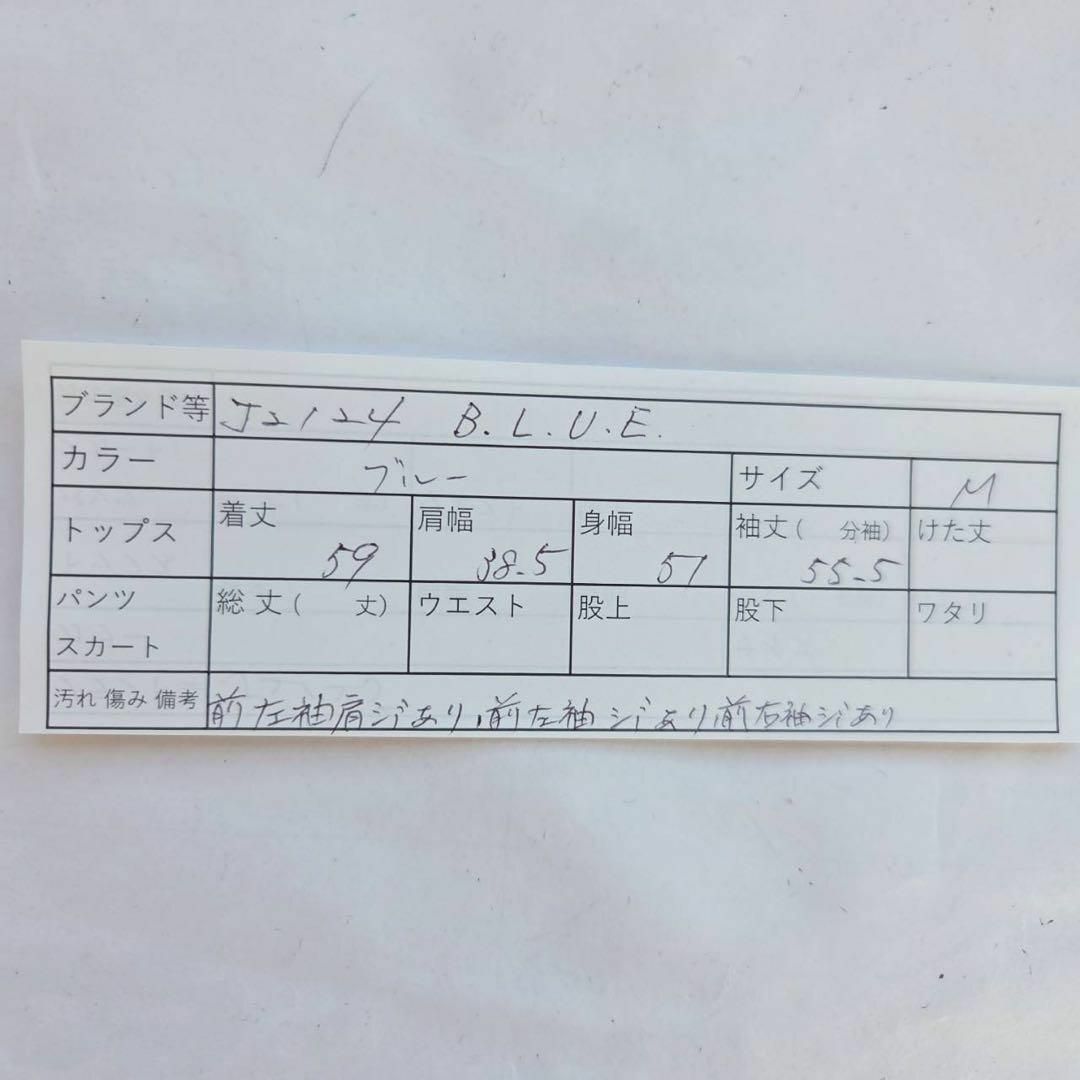 ブランド等 J2124 B.L.U.E.
カラー ブルー サイズ M
トップス 着丈 59 肩幅 38.5 身幅 51 袖丈( 分袖) 55.5 けた丈
パンツ スカート 総丈( 丈) ウエスト 股上 股下 ワタリ
汚れ 傷み 備考 前左袖肩シミあり、前左袖シミあり、前右袖シミあり